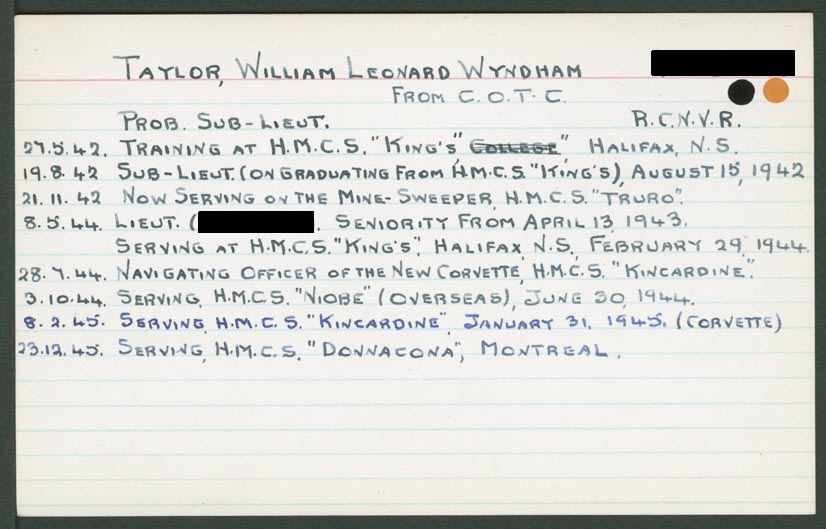 TAYLOR, WILLIAM LEONARD WYNDHAM
FROM C.O.T.C.
PROB. SUB-LIEUT. R.C.N.V.R.
27.5.42. TRAINING AT H.M.C.S. "KING'S" COLLEGE" HALIFAX, N.S.
19.8.42 SUB-LIEUT. (ON GRADUATING FROM H.M.C.S. "KING'S), AUGUST 15, 1942
21.11.42 NOW SERVING ON THE MINE-SWEEPER, H.M.C.S. "TRURO".
8.5.44. LIEUT. ( . SENIORITY FROM APRIL 13, 1943.
SERVING AT H.M.C.S. "KING'S", HALIFAX, N.S., FEBRUARY 29, 1944.
28.7.44. NAVIGATING OFFICER OF THE NEW CORVETTE, H.M.C.S. "KINCARDINE".
3.10.44. SERVING, H.M.C.S. "NIOBE" (OVERSEAS), JUNE 30, 1944.
8.2.45. SERVING, H.M.C.S. "KINCARDINE", JANUARY 31, 1945. (CORVETTE)
23.12.45. SERVING, H.M.C.S. "DONNACONA", MONTREAL.